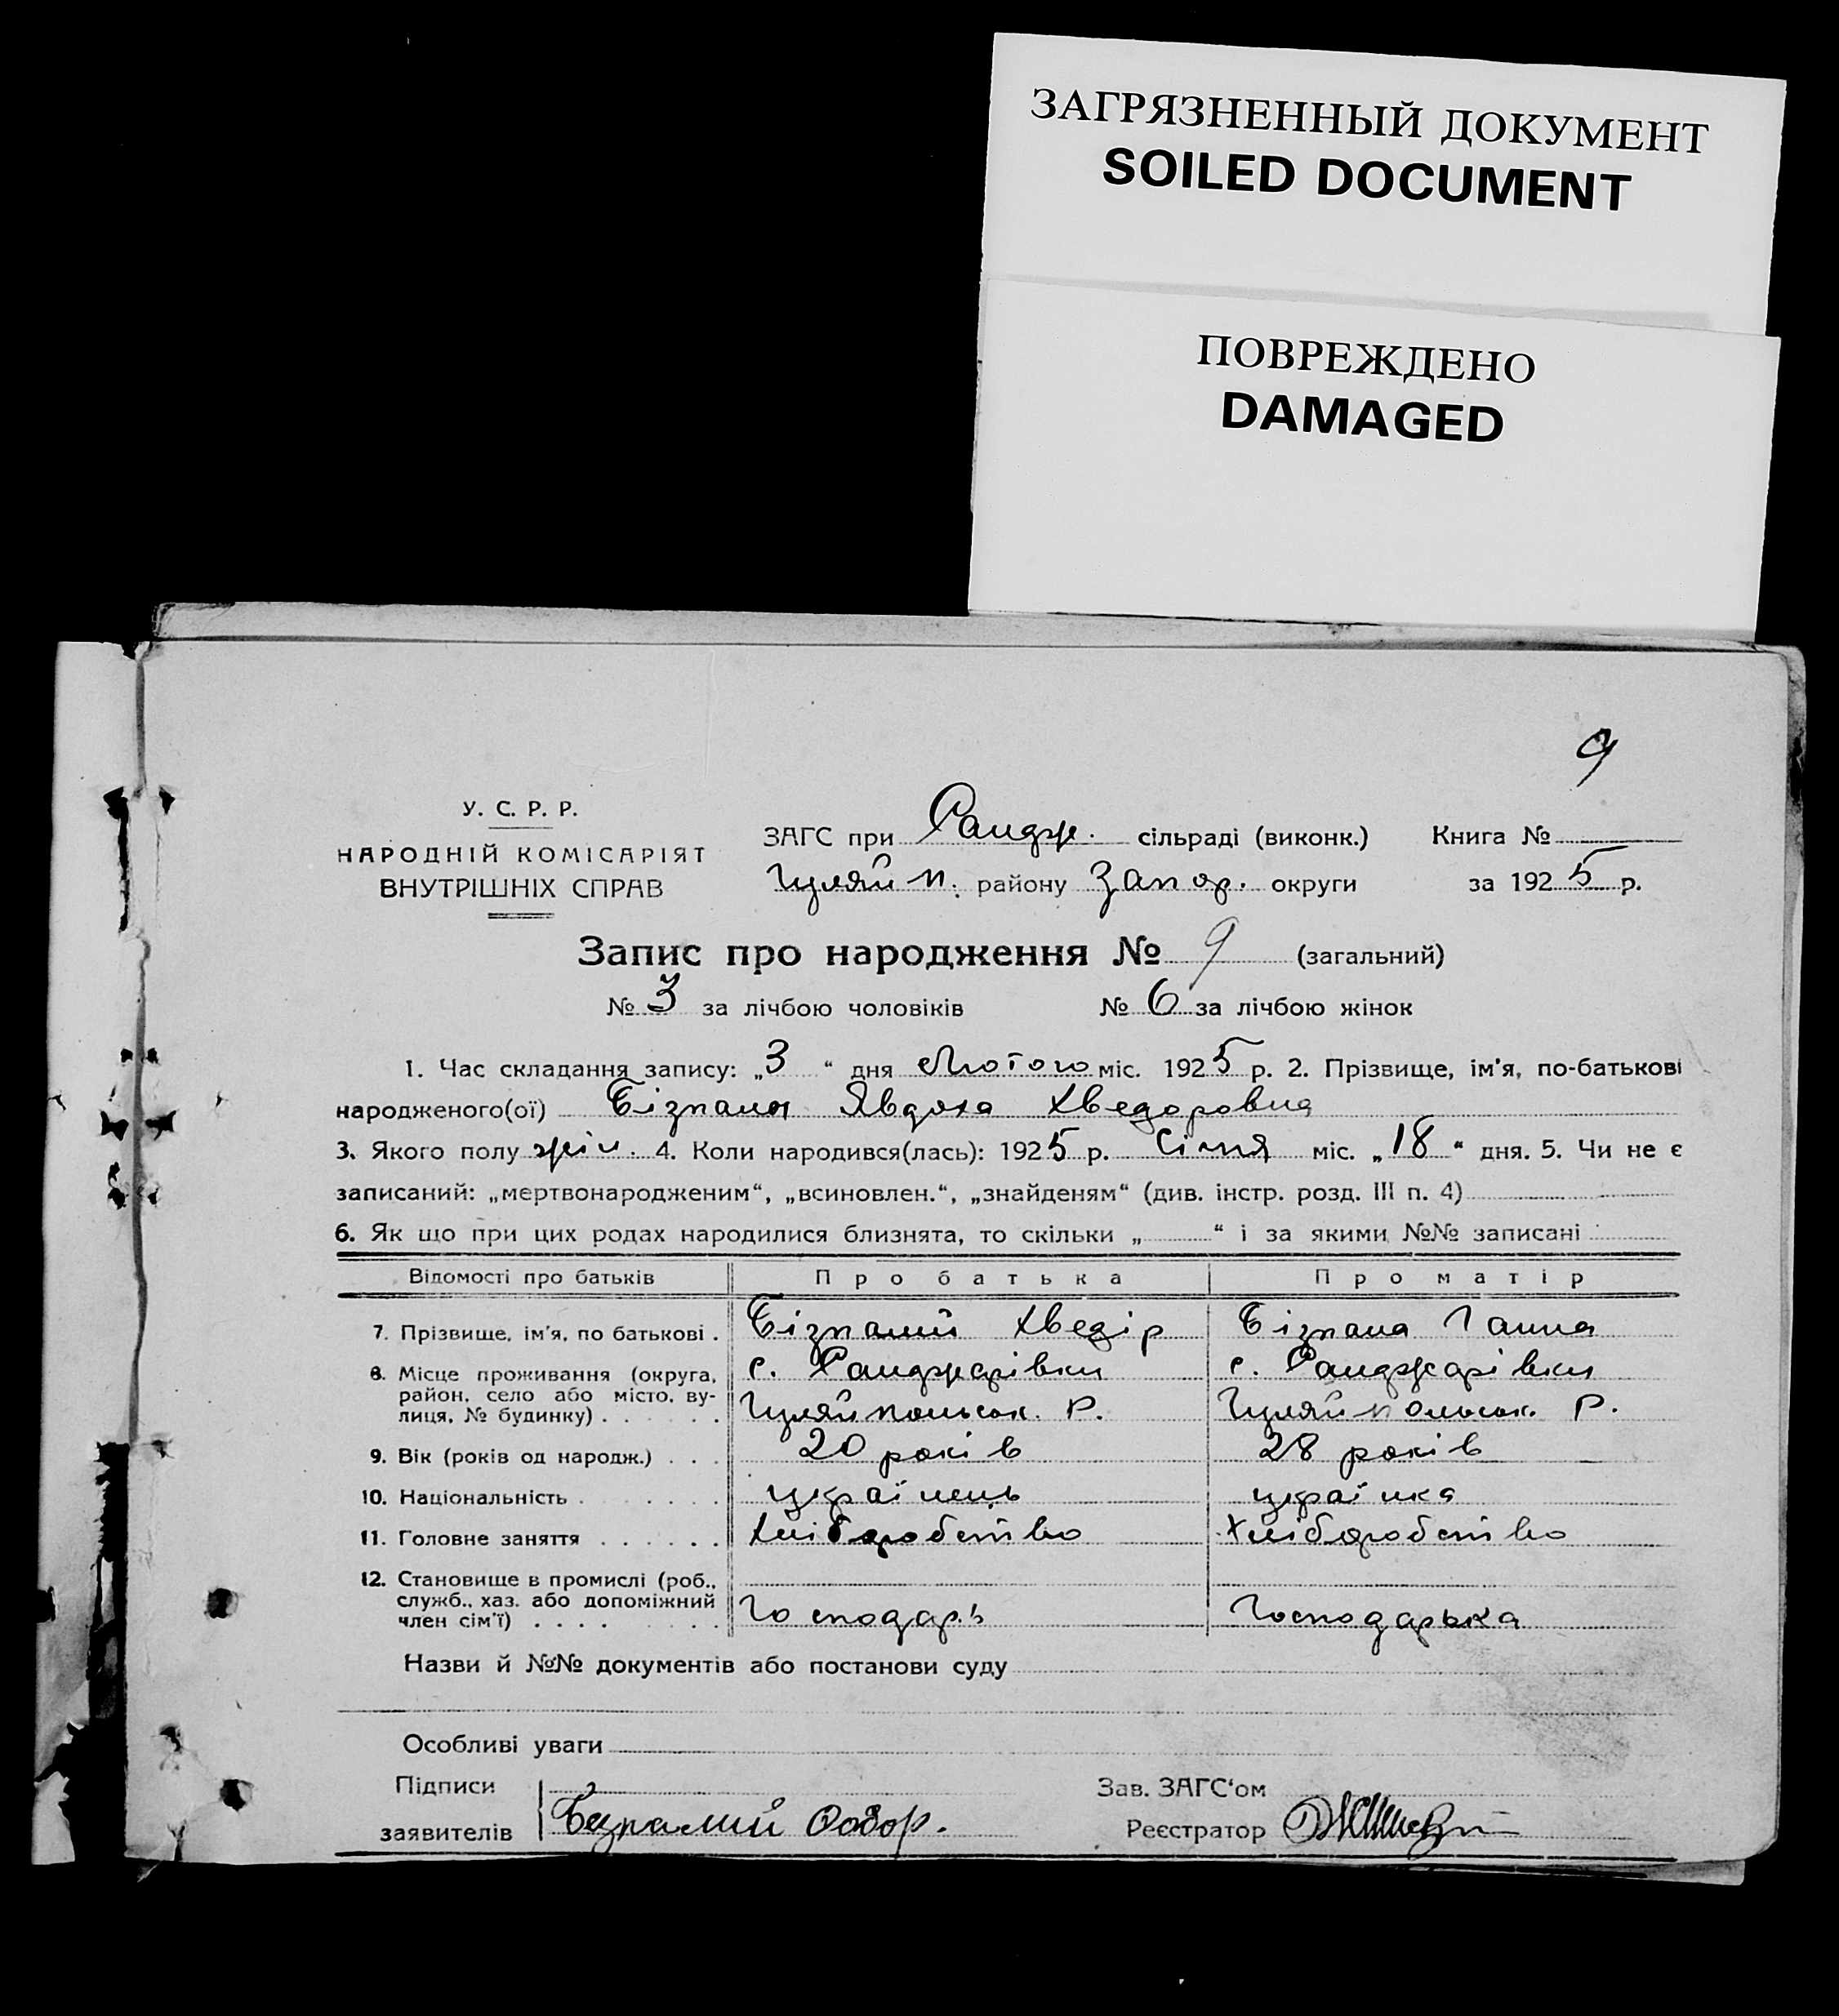 ЗАГРЯЗНЕННЫЙ ДОКУМЕНТ
SOILED DOCUMENT
ПОВРЕЖДЕНО
DAMAGED
9
У. С. Р. Р.
НАРОДНІЙ КОМІСАРІЯТ
ВНУТРІШНІХ СПРАВ
ЗАГС при Санджк. сільраді (виконк.) Книга №
Гуляй п. району Запор. округи за 1925 р.
Запис про народження № 9 (загальний)
№ 3 за лічбою чоловіків № 6 за лічбою жінок
1. Час складання запису: „3“ дня Лютого міс. 1925 р. 2. Прізвище, ім'я, по-батькові
народженого(ої) Бізпала Явдоха Хведоровна
3. Якого полу жін. 4. Коли народився(лась): 1925 р. Січня міс. „18“ дня. 5. Чи не є
записаний: „мертвонародженим“, „всиновлен.“, „знайденям“ (див. інстр. розд. III п. 4)
6. Як що при цих родах народилися близнята, то скільки „ “ і за якими №№ записані
Відомості про батьків Про батька Про матір
7. Прізвище, ім'я, по батькові . Бізпалий Хведір Бізпала Ганна
8. Місце проживання (округа, район, село або місто, вулиця, № будинку) . . . . . . с. Санджарівки с. Санджарівки
Гуляйпольськ. Р. Гуляйпольськ. Р.
9. Вік (років од народж.) . . . 20 років 28 років
10. Національність . . . . . . . українець українка
11. Головне заняття . . . . . . Хліборобство Хліборобство
12. Становище в промислі (роб.,
служб., хаз. або допоміжний
член сім'ї) . . . . . . . . Господарь Господарька
Назви й №№ документів або постанови суду
Особливі уваги
Підписи Зав. ЗАГС'ом
заявителів Безпалий Реєстратор